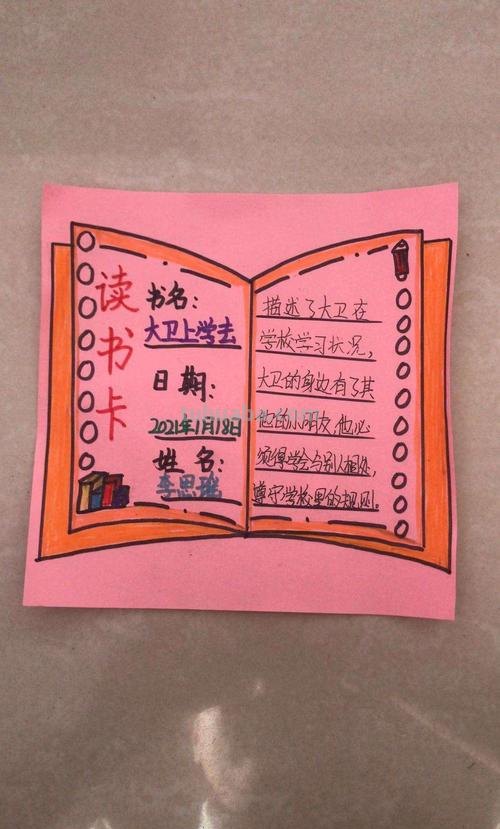 读书卡
书名：
大卫上学去
日期：
2021年1月18日
姓名：
李思瑶
描述了大卫在
学校学习状况，
大卫的身边有了其
他的小朋友，他必
须得学会与别人相处，
遵守学校里的规则。